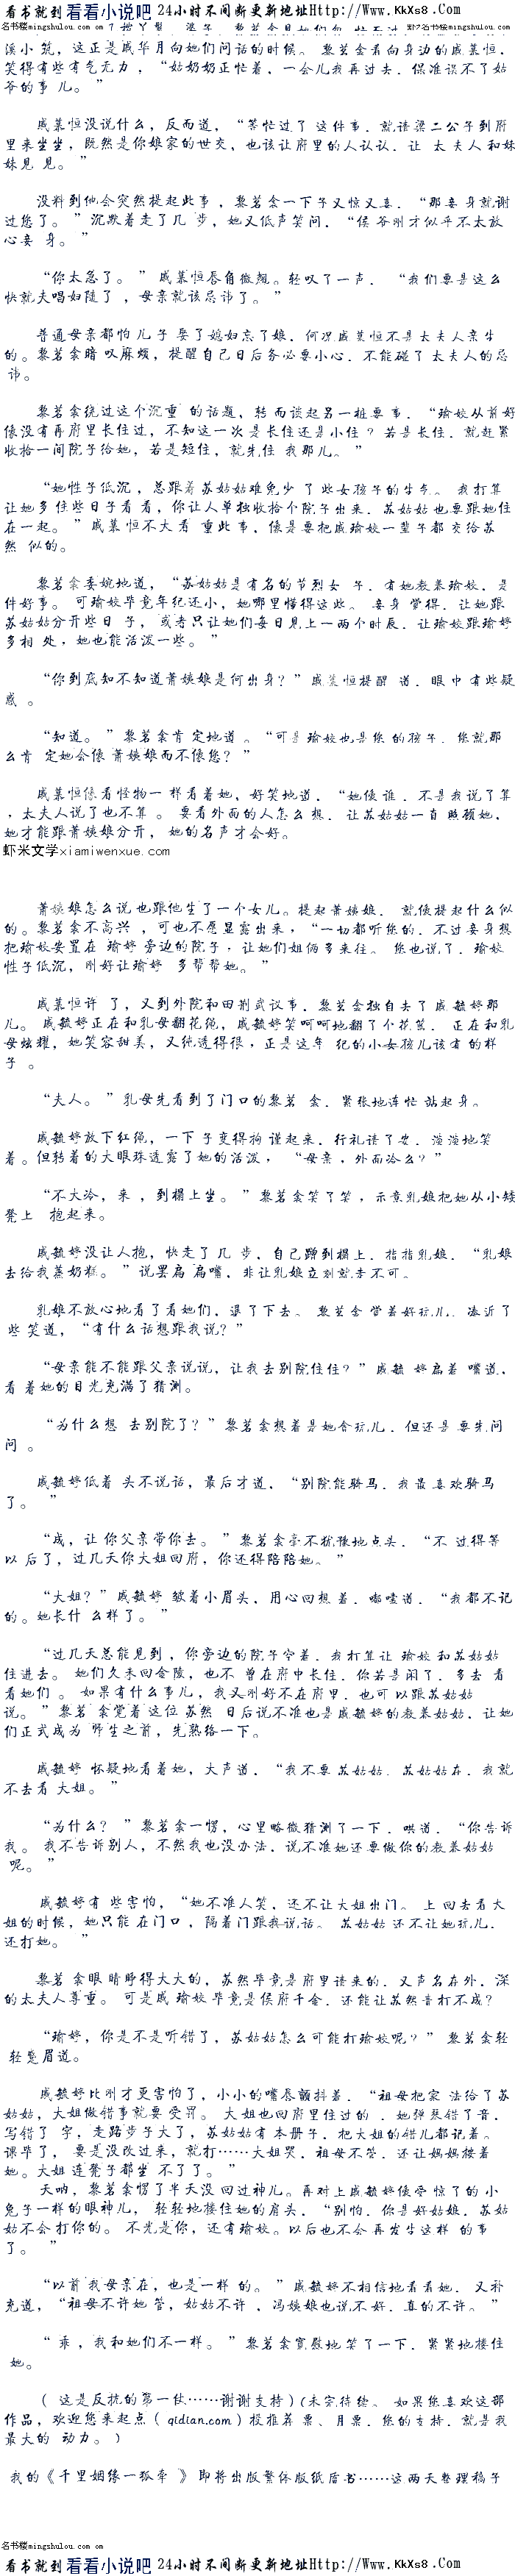 看书就到看看小说吧 24小时不间断更新地址Http://Www.KkXs8.Com
名书楼mingshulou.com
溪小筑，这正是戚华月向她们问话的时候。黎茗衾看向身边的戚慕恒，
笑得有些有气无力，“姑奶奶正忙着，一会儿我再过去，保准误不了姑
爷的事儿。”
戚慕恒没说什么，反而道，“等忙过了这件事，就请梁二公子到府
里来坐坐，既然是你娘家的世交，也该让府里的人认认，让太夫人和妹
妹见见。”
没料到他会突然提起此事，黎茗衾一下子又惊又喜，“那妾身就谢
过您了。”沉默着走了几步，她又低声笑问，“侯爷刚才似乎不太放
心妾身。”
“你太急了。”戚慕恒唇角微翘，轻叹了一声，“我们要是这么
快就夫唱妇随了，母亲就该忌讳了。”
普通母亲都怕儿子娶了媳妇忘了娘，何况戚慕恒不是太夫人亲生
的。黎茗衾暗叹麻烦，提醒自己日后务必要小心，不能碰了太夫人的忌
讳。
黎茗衾绕过这个沉重的话题，转而谈起另一桩要事，“瑜姣从前好
像没有再府里长住过，不知这一次是长住还是小住？若是长住，就赶紧
收拾一间院子给她，若是短住，就先住我那儿。”
“她性子低沉，总跟着苏姑姑难免少了些女孩子的生气。我打算
让她多住些日子看看，你让人单独收拾个院子出来，苏姑姑也要跟她住
在一起。”戚慕恒不大看重此事，像是要把戚瑜姣一辈子都交给苏
然似的。
黎茗衾委婉地道，“苏姑姑是有名的节烈女子，有她教养瑜姣，是
件好事。可瑜姣毕竟年纪还小，她哪里懂得这些。妾身觉得，让她跟
苏姑姑分开些日子，或者只让她们每日见上一两个时辰，让瑜姣跟瑜婷
多相处，她也能活泼一些。”
“你到底知不知道萧姨娘是何出身？”戚慕恒提醒道，眼中有些疑
惑。
“知道。”黎茗衾肯定地道。“可是瑜姣也是您的孩子，您就那
么肯定她会像萧姨娘而不像您？”
戚慕恒像看怪物一样看着她，好笑地道，“她像谁，不是我说了算
，太夫人说了也不算。要看外面的人怎么想，让苏姑姑一直照顾她，
她才能跟萧姨娘分开，她的名声才会好。
虾米文学xiamiwenxue.com
萧姨娘怎么说也跟他生了一个女儿。提起萧姨娘，就像提起什么似
的。黎茗衾不高兴，可也不愿显露出来，“一切都听您的，不过妾身想
把瑜姣安置在瑜婷旁边的院子，让她们姐俩多来往。您也说了，瑜姣
性子低沉，刚好让瑜婷多帮帮她。”
戚慕恒许了，又到外院和田荆武议事，黎茗衾独自去了戚毓婷那
儿。戚毓婷正在和乳母翻花绳，戚毓婷笑呵呵地翻了个花篮，正在和乳
母炫耀，她笑容甜美，又纯透得很，正是这年纪的小女孩儿该有的样
子。
“夫人。”乳母先看到了门口的黎茗衾，紧张地连忙站起身。
戚毓婷放下红绳，一下子变得拘谨起来，行礼请了安，淡淡地笑
着。但转着的大眼珠透露了她的活泼，“母亲，外面冷么？”
“不大冷，来，到榻上坐。”黎茗衾笑了笑，示意乳娘把她从小矮
凳上抱起来。
戚毓婷没让人抱，快走了几步，自己蹭到榻上，指指乳娘，“乳娘
去给我蒸奶糕。”说罢扁扁嘴，非让乳娘立刻就去不可。
乳娘不放心地看了看她们，退了下去。黎茗衾觉着好玩儿，凑近了
些笑道，“有什么话想跟我说？”
“母亲能不能跟父亲说说，让我去别院住住？”戚毓婷扁着嘴道，
看着她的目光充满了猜测。
“为什么想去别院了？”黎茗衾想着是她贪玩儿，但还是要先问
问。
戚毓婷低着头不说话，最后才道，“别院能骑马，我最喜欢骑马
了。”
“成，让你父亲带你去。”黎茗衾毫不犹豫地点头，“不过得等
以后了，过几天你大姐回府，你还得陪陪她。”
“大姐？”戚毓婷皱着小眉头，用心回想着，嘟囔道，“我都不记
的。她长什么样了。”
“过几天总能见到，你旁边的院子空着，我打算让瑜姣和苏姑姑
住进去。她们久未回金陵，也不曾在府中长住，你若是闲了，多去看
看她们。如果有什么事儿，我又刚好不在府里，也可以跟苏姑姑
说。”黎茗衾觉着这位苏然日后说不准也是戚毓婷的教养姑姑，让她
们正式成为师生之前，先熟络一下。
戚毓婷怀疑地看着她，大声道，“我不要苏姑姑，苏姑姑在，我就
不去看大姐。”
“为什么？”黎茗衾一愣，心里略微猜测了一下，哄道，“你告诉
我。我不告诉别人，不然我也没办法，说不准她还要做你的教养姑姑
呢。”
戚毓婷有些害怕，“她不准人笑，还不让大姐出门。上回去看大
姐的时候，她只能在门口，隔着门跟我说话。苏姑姑还不让她玩儿，
还打她。”
黎茗衾眼睛睁得大大的，苏然毕竟是府里请来的，又声名在外，深
的太夫人尊重。可是戚瑜姣毕竟是侯府千金，还能让苏然责打不成？
“瑜婷，你是不是听错了，苏姑姑怎么可能打瑜姣呢？”黎茗衾轻
轻蹙眉道。
戚毓婷比刚才更害怕了，小小的嘴唇颤抖着，“祖母把家法给了苏
姑姑，大姐做错事就要受罚。大姐也回府里住过的，她弹琴错了音，
写错了字，走路步子大了，苏姑姑有本册子，把大姐的错儿都记着。
课毕了，要是没改过来，就打……大姐哭，祖母不管，还让妈妈按着
她。大姐连凳子都坐不了了。”
天呐，黎茗衾愣了半天没回过神儿。再对上戚毓婷像受惊了的小
兔子一样的眼神儿，轻轻地搂住她的肩头，“别怕，你是好姑娘，苏姑
姑不会打你的。不光是你，还有瑜姣。以后也不会再发生这样的事
了。”
“以前我母亲在，也是一样的。”戚毓婷不相信地看看她，又补
充道，“祖母不许她管，姑姑不许，冯姨娘也说不好，真的不许。”
“乖，我和她们不一样。”黎茗衾宽慰地笑了一下，紧紧地搂住
她。
（这是反抗的第一仗……谢谢支持）（未完待续。如果您喜欢这部
作品，欢迎您来起点（qidian.com）投推荐票、月票，您的支持，就是我
最大的动力。）
我的《千里姻缘一狐牵》即将出版繁体版纸质书……这两天整理稿子
名书楼mingshulou.com om
看书就到看看小说吧 24小时不间断更新地址Http://Www.KkXs8.Com